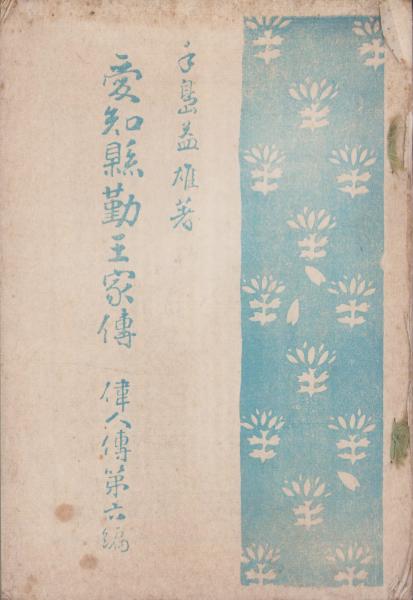 手島益雄著
愛知縣勤王家傳 偉人傳第六編